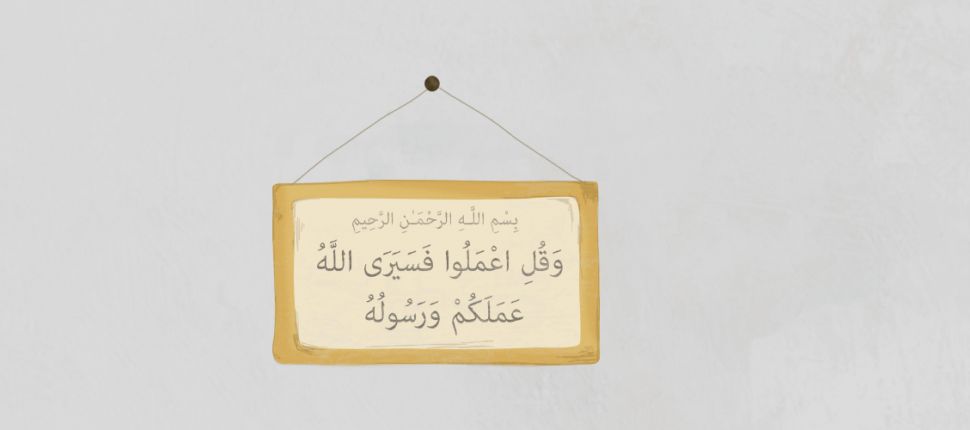 بِسْمِ اللَّـهِ الرَّحْمَـٰنِ الرَّحِيمِ
وَقُلِ اعْمَلُوا فَسَيَرَى اللَّهُ
عَمَلَكُمْ وَرَسُولُهُ